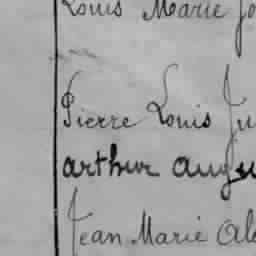 Louis Marie Jo
Pierre Louis Ju
arthur augu
Jean Marie Ale